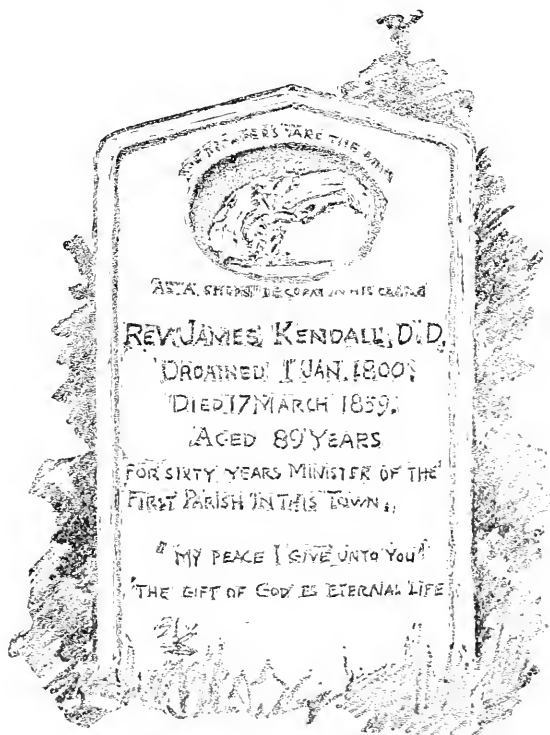 THE REAPERS ARE THE
AS A SHOCK
IN HIS
REV. JAMES KENDALL, D.D.
ORDAINED 1 JAN. 1800;
DIED 17 MARCH 1859,
AGED 89 YEARS
FOR SIXTY YEARS MINISTER OF THE
FIRST PARISH IN THIS TOWN.
"MY PEACE I GIVE UNTO YOU"
"THE GIFT OF GOD IS ETERNAL LIFE